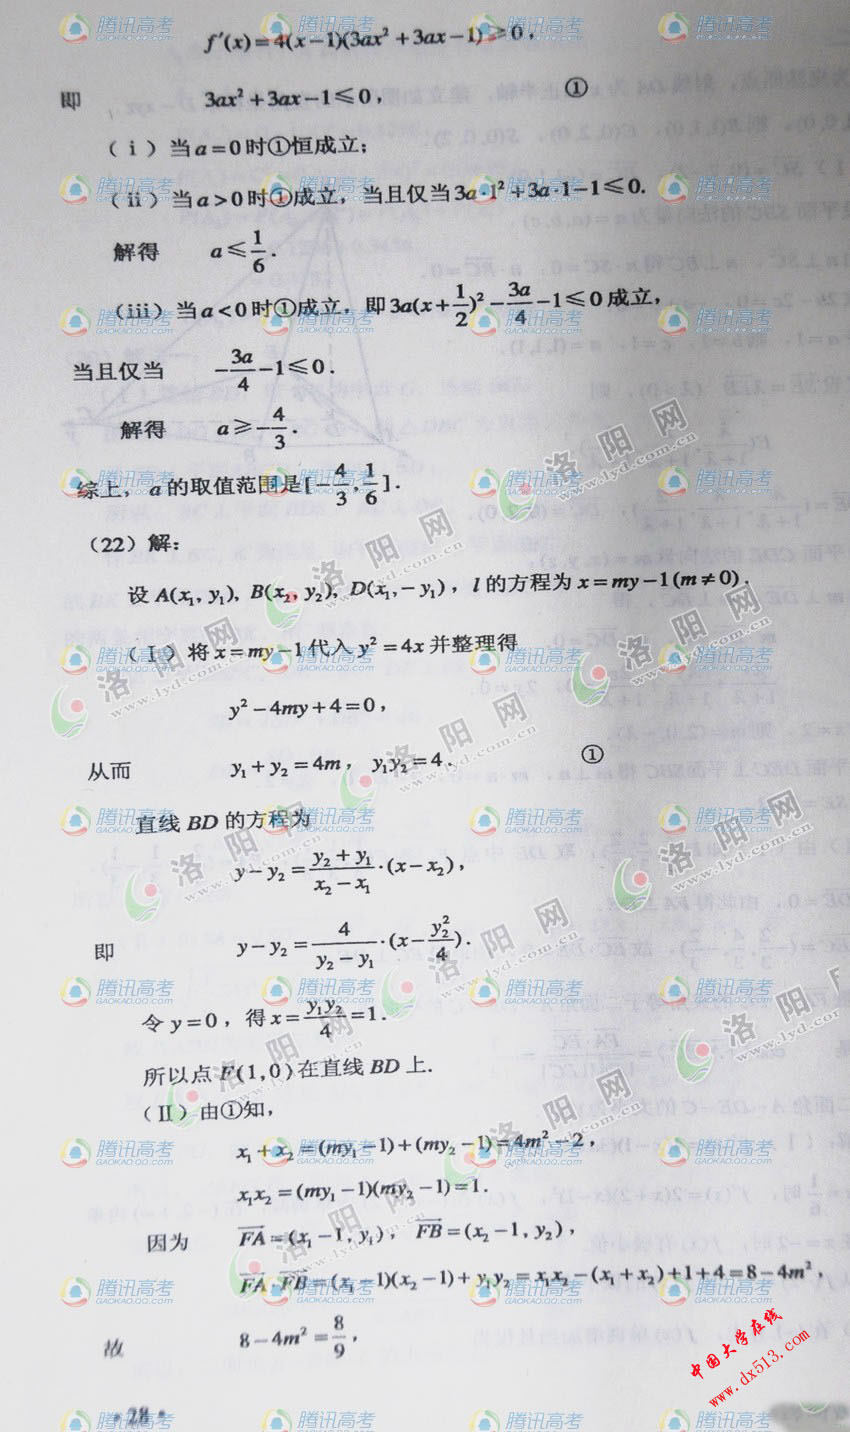 f′(x)=4(x−1)(3ax²+3ax−1)≥0,
即 3ax²+3ax−1≤0, ①
(ⅰ)当a=0时①恒成立;
(ⅱ)当a>0时①成立,当且仅当3a·1²+3a·1−1≤0.
解得 a≤1/6.
(ⅲ)当a<0时①成立,即3a(x+1/2)²−3a/4−1≤0成立,
当且仅当 −3a/4−1≤0.
解得 a≥−4/3.
综上,a的取值范围是[−4/3,1/6].
(22)解:
设A(x₁,y₁),B(x₂,y₂),D(x₁,−y₁),l的方程为x=my−1(m≠0).
(Ⅰ)将x=my−1代入y²=4x并整理得
y²−4my+4=0,
从而 y₁+y₂=4m,y₁y₂=4. ①
直线BD的方程为
y−y₂=(y₂+y₁)/(x₂−x₁)·(x−x₂),
即 y−y₂=4/(y₂−y₁)·(x−y₂²/4).
令y=0,得x=y₁y₂/4=1.
所以点F(1,0)在直线BD上.
(Ⅱ)由①知,
x₁+x₂=(my₁−1)+(my₂−1)=4m²−2,
x₁x₂=(my₁−1)(my₂−1)=1.
因为 F⃗A⃗=(x₁−1,y₁),F⃗B⃗=(x₂−1,y₂),
F⃗A⃗·F⃗B⃗=(x₁−1)(x₂−1)+y₁y₂=x₁x₂−(x₁+x₂)+1+4=8−4m²,
故 8−4m²=8/9,
·28·
腾讯高考
GAOKAO.QQ.COM
洛阳网
www.lyd.com.cn
中国大学在线
www.dx513.com